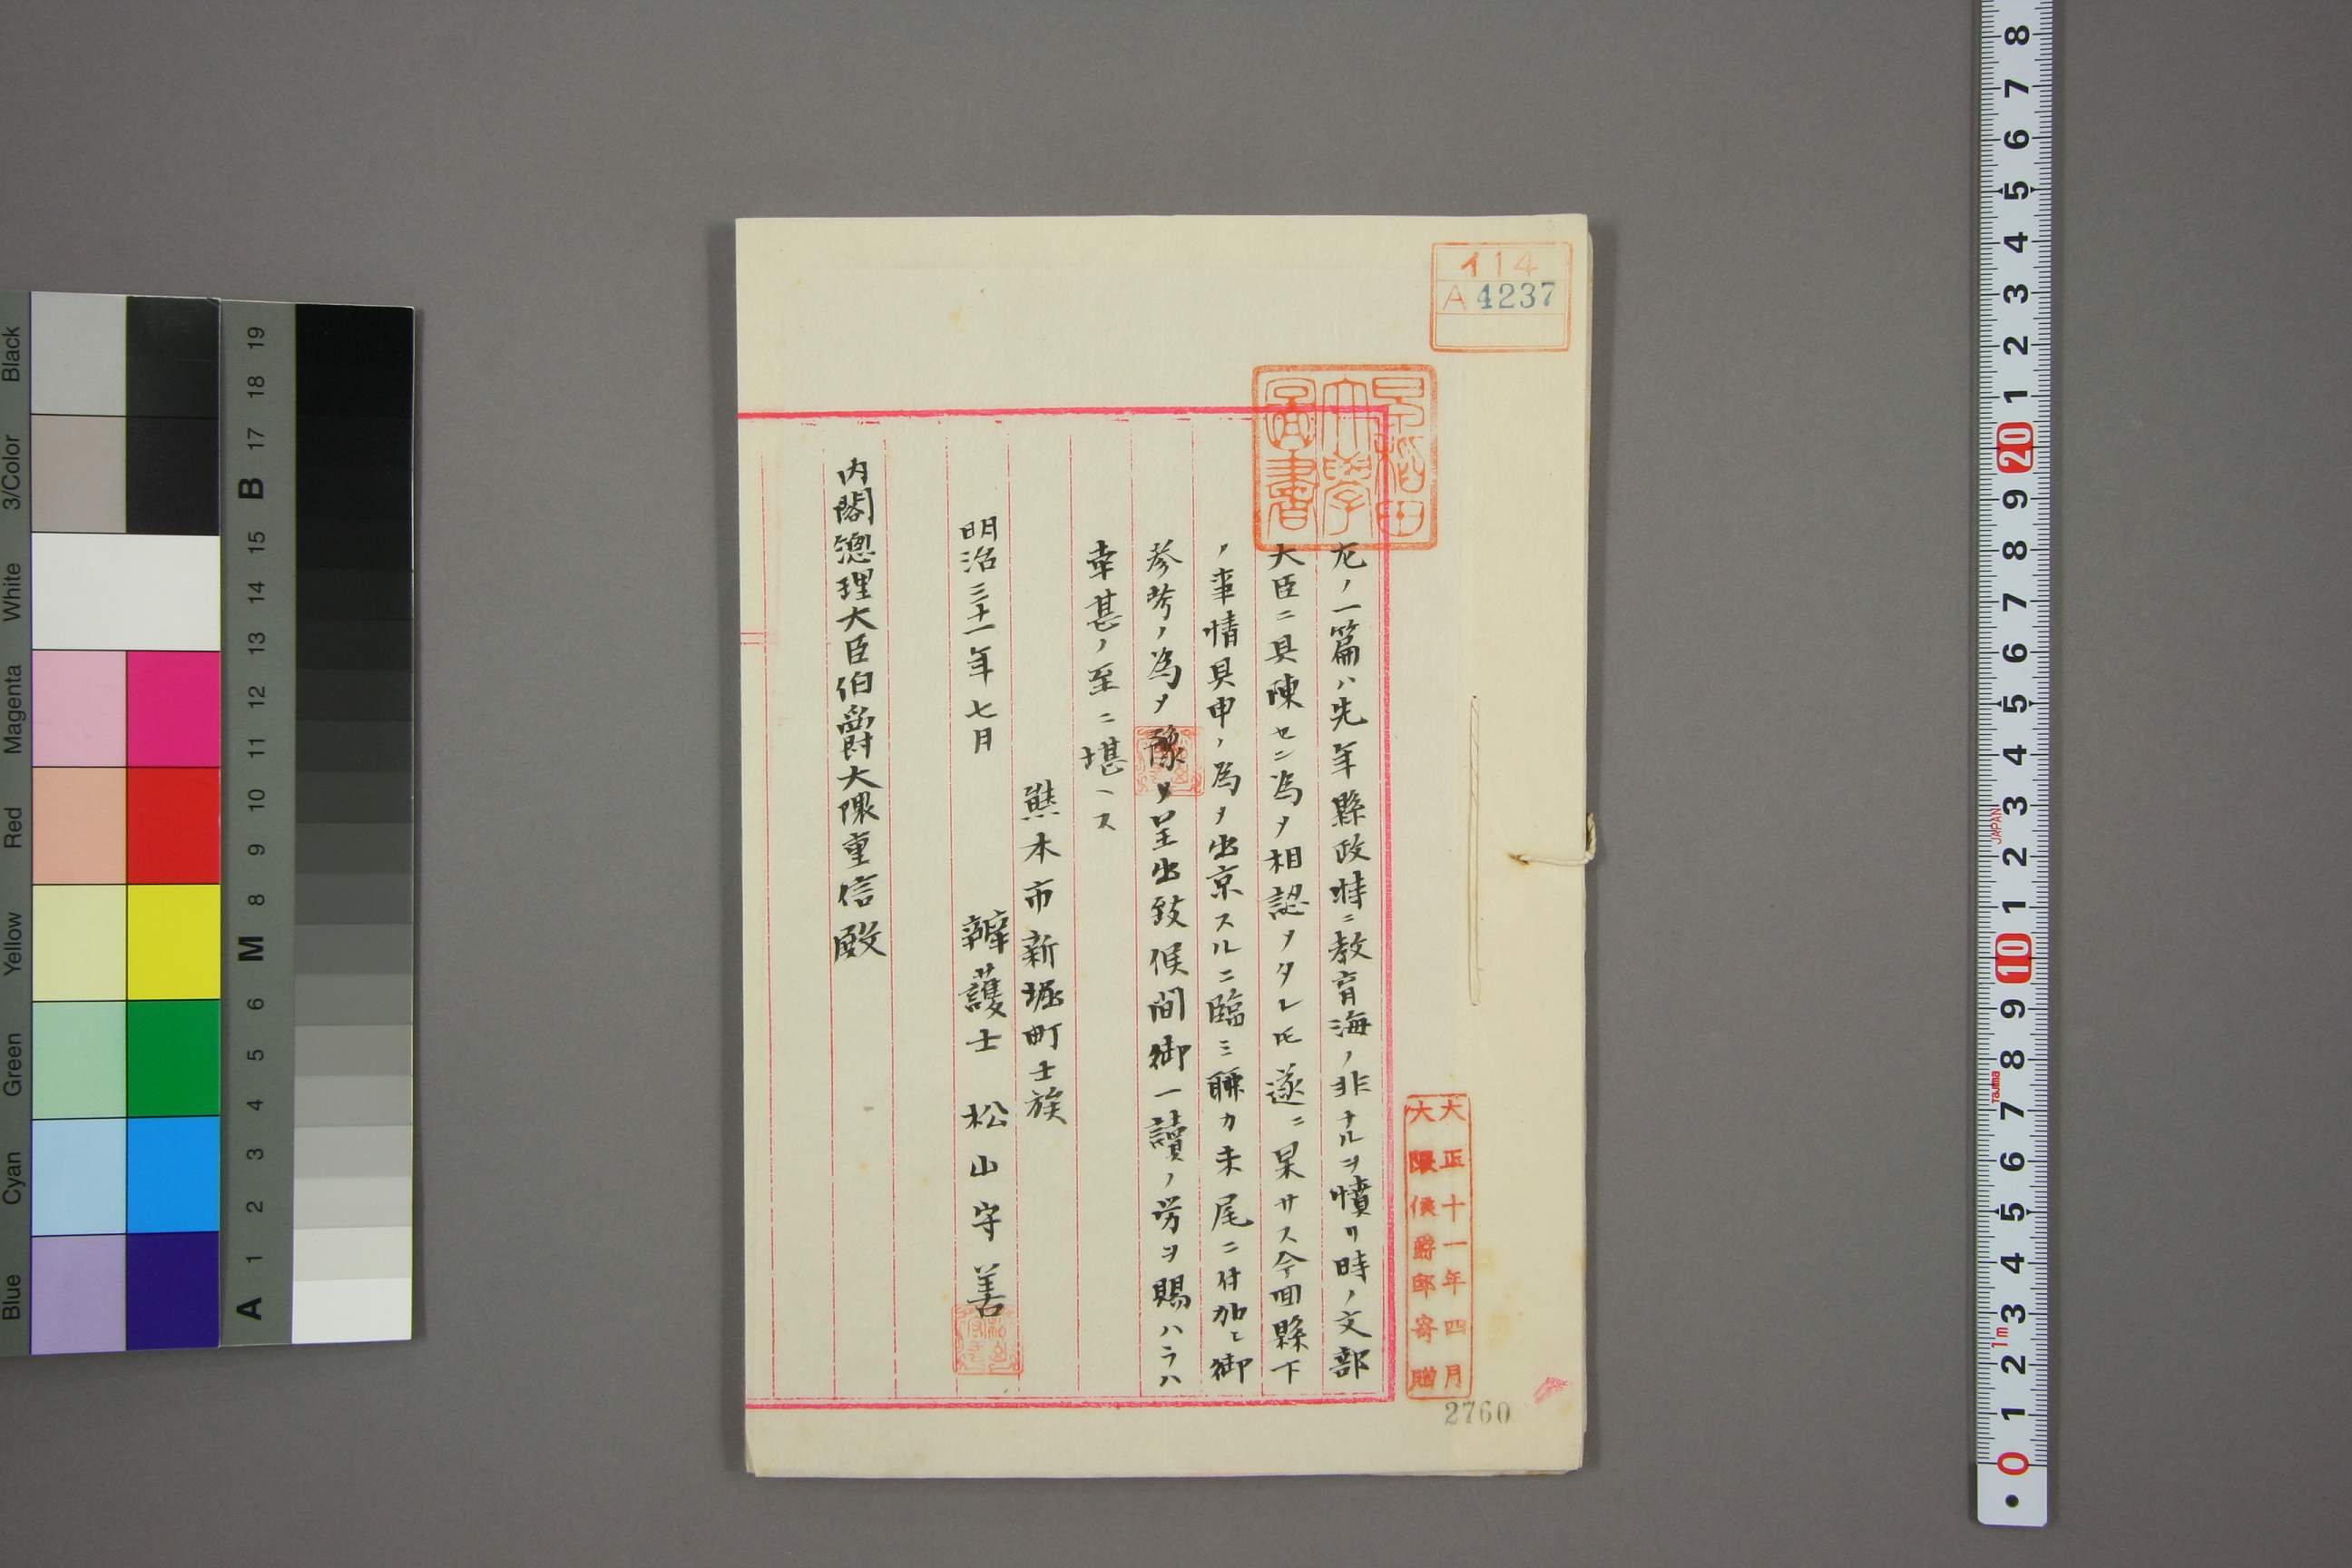 イ14
A 4237
早稲田
大學
圖書
大正十一年四月
大隈侯爵邸寄贈
2760
左ノ一篇ハ先年縣政特ニ教育海ノ非ナルヲ憤リ時ノ文部
大臣ニ具陳セン為メ相認メタレ𪜈遂ニ果サス今回縣下
ノ事情具申ノ為メ出京スルニ臨ミ聊カ末尾ニ付加ヒ御
参考ノ為メ豫メ呈出致候間御一讀ノ労ヲ賜ハラハ
幸甚ノ至ニ堪ヘス
熊本市新堀町士族
明治三十一年七月
辯護士 松山守善
内閣總理大臣伯爵大隈重信殿
Black
3/Color
White
Magenta
Red
Yellow
Green
Cyan
Blue
A 1 2 3 4 5 6 M 8 9 10 11 12 13 14 15 B 17 18 19
8 7 6 5 4 3 2 1 20 9 8 7 6 5 4 3 2 1 10 9 8 7 6 5 4 3 2 1 0
JAPAN
Tajima
1m